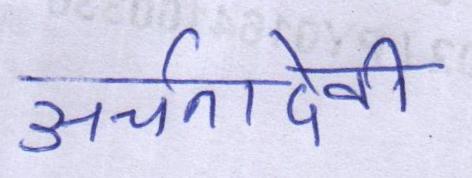 अर्चना देवी